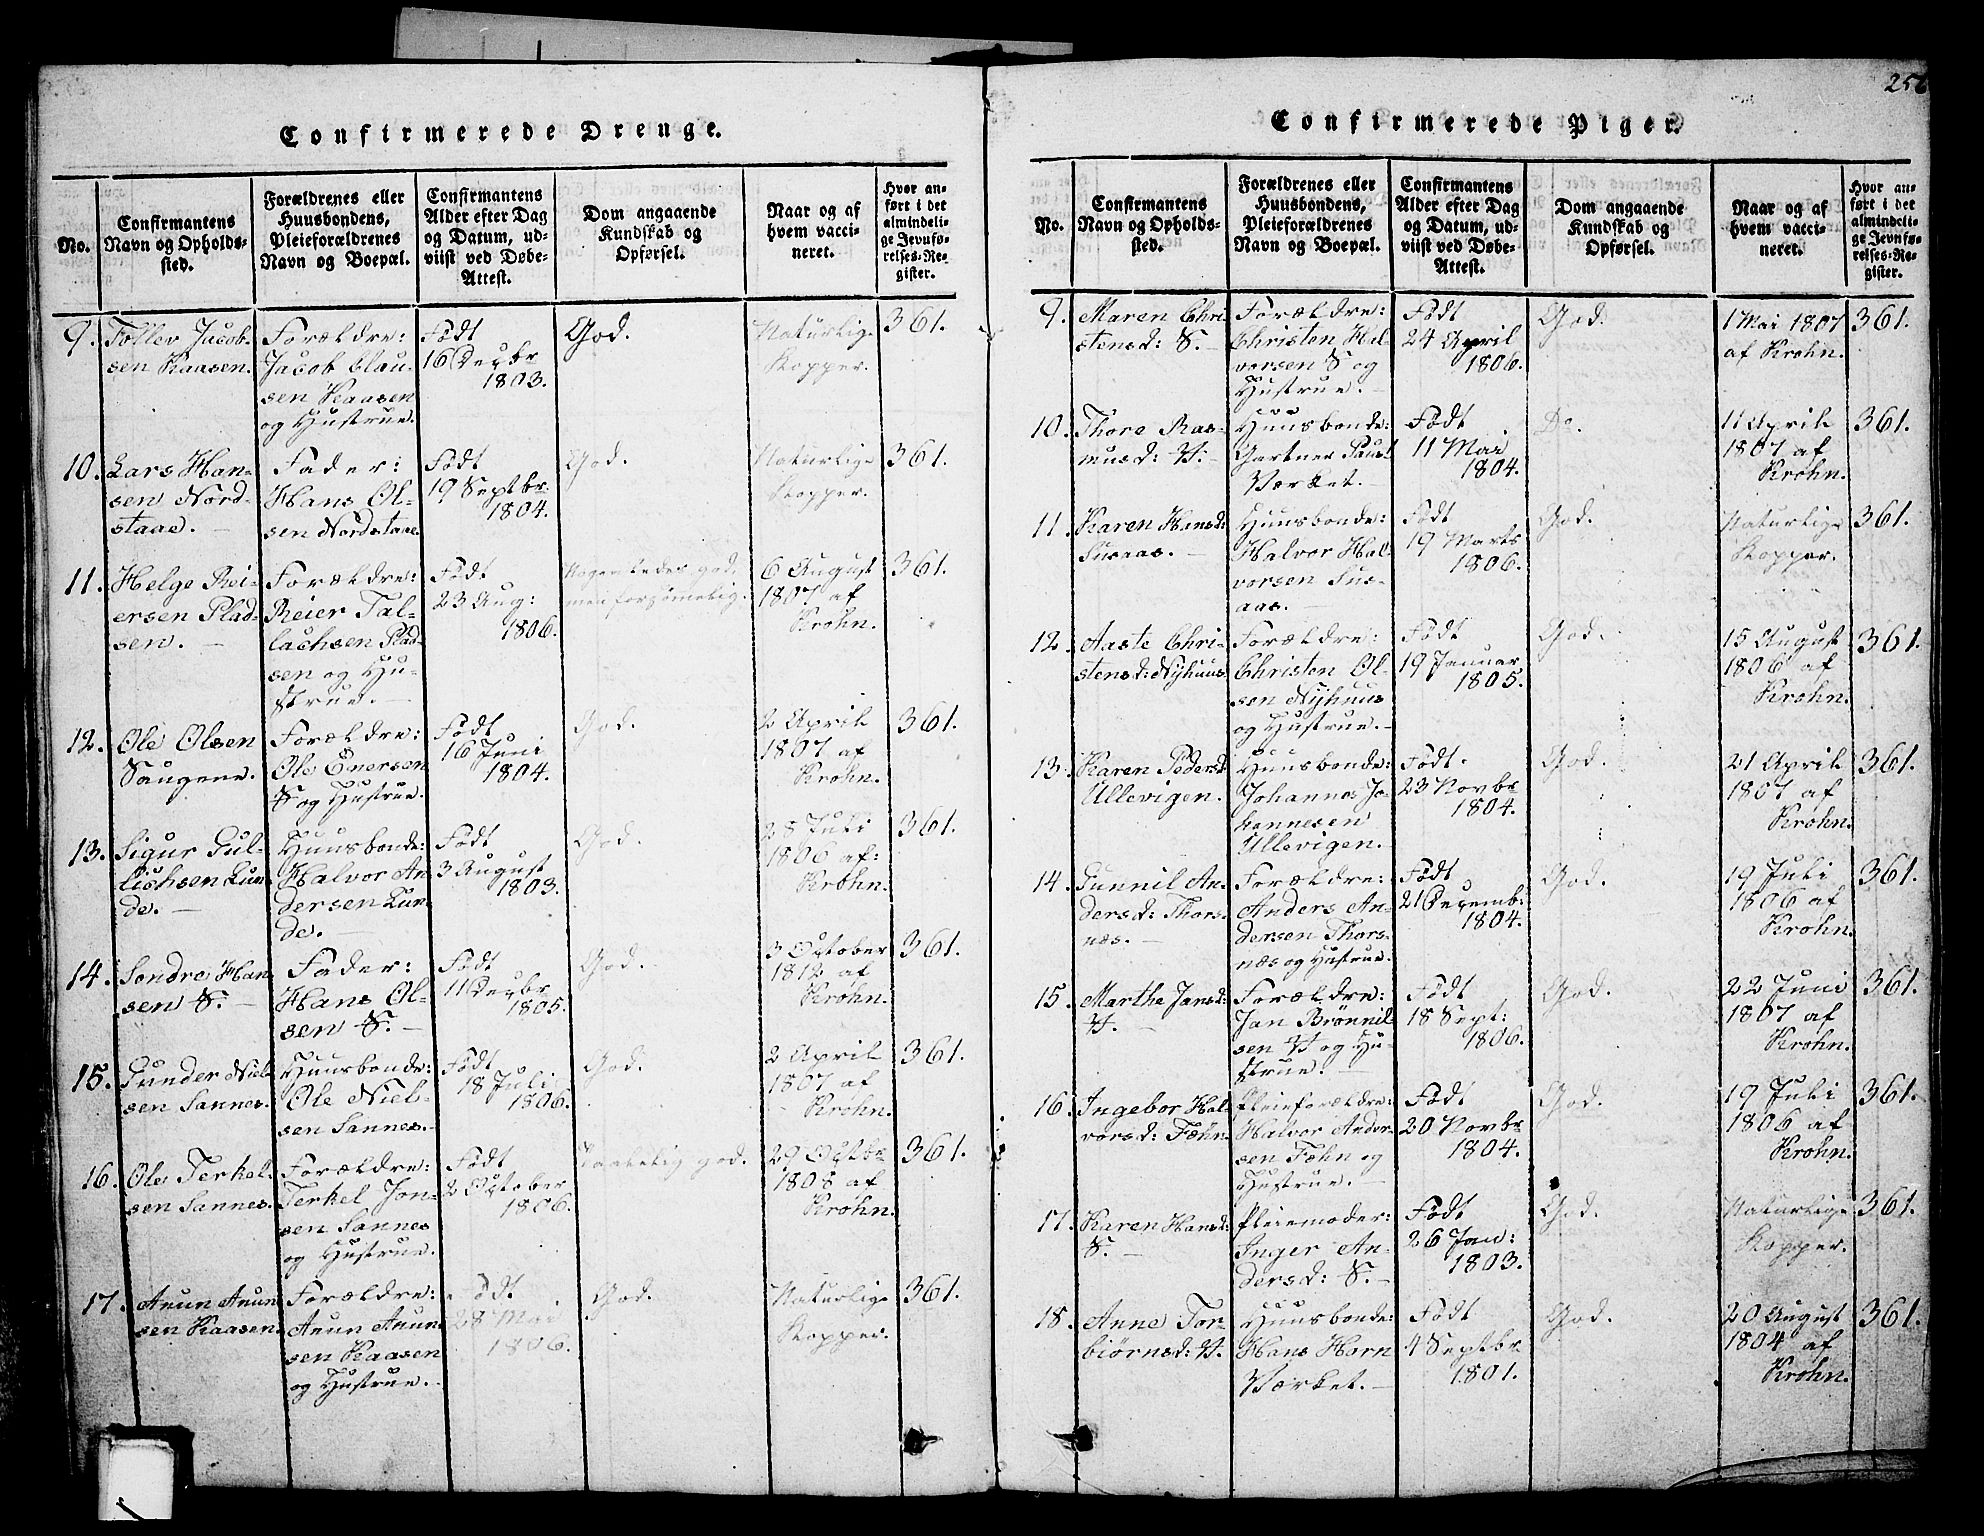 256
Confirmerede Drenge.
No.
Confirmantens
Navn og Opholds-
sted.
Forældrenes eller
Huusbondens,
Pleieforældrenes
Navn og Boepæl.
Confirmantens
Alder efter Dag
og Datum, ud-
viist ved Døbe-
Attest.
Dom angaaende
Kundskab og
Opførsel.
Naar og af
hvem vacci-
neret.
Hvor an-
ført i det
almindeli-
ge Jevnfø-
relses-Re-
gister.
9.
Tollev Jacob-
sen Kaasen.
Forældre:
Jacob Clau-
sen Kaasen
og Hustrue.
Født
16 Decbr
1803.
God.
Naturlige
Kopper.
361.
10.
Lars Han-
sen Nord-
staae.
Fader:
Hans Ol-
sen Nordstaae
Født
19 Septbr
1804.
God.
Naturlige
Kopper.
361.
11.
Helge Rei-
ersen Plad-
sen.
Forældre:
Reier Tal-
lachsen Plad-
sen og Hu-
strue.
Født
23 Aug:
1806.
Nogenledes god,
men forsømelig.
6 August
1807 af
Krohn.
361.
12.
Ole Olsen
Saugene.
Forældre:
Ole Enersen
S og Hustrue.
Født
16 Juni
1804.
God.
2 April
1807 af
Krohn.
361.
13.
Sigur Gul-
lichsen Lun-
de.
Huusbonde:
Halvor An-
dersen Lun-
de.
Født
3 August
1803.
God.
28 Juli
1806 af:
Krohn.
361.
14.
Sondre Han-
sen S.
Fader:
Hans Ol-
sen S.
Født
11 Decbr
1805.
God.
3 October
1812 af
Krohn.
361.
15.
Gunder Niel-
sen Sannes.
Huusbonde:
Ole Niel-
sen Sannes.
Født
18 Juli
1806.
God.
2 April
1807 af
Krohn.
361.
16.
Ole Terkel-
sen Sannes.
Forældre:
Terkel Jon-
sen Sannes
og Hustrue.
Født
2 October
1806.
Taalelig god.
29 Octbr
1808 af
Krohn.
361.
17.
Anun Anun-
sen Kaasen.
Forældre:
Anun Anun-
sen Kaasen
og Hustrue.
Født
28 Mai
1806.
God.
Naturlige
Kopper.
361.
Confirmerede Piger.
No.
Confirmantens
Navn og Opholds-
sted.
Forældrenes eller
Huusbondens,
Pleieforældrenes
Navn og Boepæl.
Confirmantens
Alder efter Dag
og Datum, ud-
viist ved Døbe-
Attest.
Dom angaaende
Kundskab og
Opførsel.
Naar og af
hvem vacci-
neret.
Hvor an-
ført i det
almindeli-
ge Jevnfø-
relses-Re-
gister.
9.
Maren Chri-
stensd: S.
Forældre:
Christen Hal-
vorsen S og
Hustrue.
Født
24 April
1806.
God.
1 Mai 1807
af Krohn.
361.
10.
Thore Ras-
musd: V.
Huusbonde:
Gartner Paust
Værket.
Født
11 Mai
1804.
Do.
11 April
1807 af
Krohn.
361.
11.
Karen Hansd:
Susaas.
Huusbonde:
Halvor Hal-
vorsen Sus-
aas.
Født
19 Marts
1806.
God.
Naturlige
Kopper.
361.
12.
Aaste Chri-
stensd: Nyhuus
Forældre:
Christen Ol-
sen Nyhuus
og Hustrue.
Født
19 Januar
1805.
God.
15 August
1806 af
Krohn.
361.
13.
Karen Pedersd:
Ullevigen.
Huusbonde:
Johannes Jo-
hannesen
Ullevigen.
Født.
23 Novbr
1804.
God.
21 April
1807 af
Krohn.
361.
14.
Gunnil An-
dersd: Thors-
næs.
Forældre:
Anders An-
dersen Thors-
næs og Hustrue.
Født
21 Decemb:
1804.
God.
19 Juli
1806 af
Krohn.
361.
15.
Marthe Jansd:
V.
Forældre:
Jan Brønnil-
sen V og Hu-
strue.
Født
18 Sept:
1806.
God.
22 Juni
1807 af
Krohn.
361.
16.
Ingebor Hal-
vorsd: Fæhn.
Pleieforældre:
Halvor Ander-
sen Fæhn og
Hustrue.
Født
20 Novbr
1804.
God.
19 Juli
1806 af
Krohn.
361.
17.
Karen Hansd:
S.
Pleiemoder:
Inger An-
dersd: S.
Født
26 Jan:
1803.
God.
Naturlige
Kopper.
361.
18.
Anne Tor-
biørnsd: V.
Huusbonde:
Hans Horn
Værket.
Født
4 Septbr
1801.
God.
20 August
1804 af
Krohn.
361.